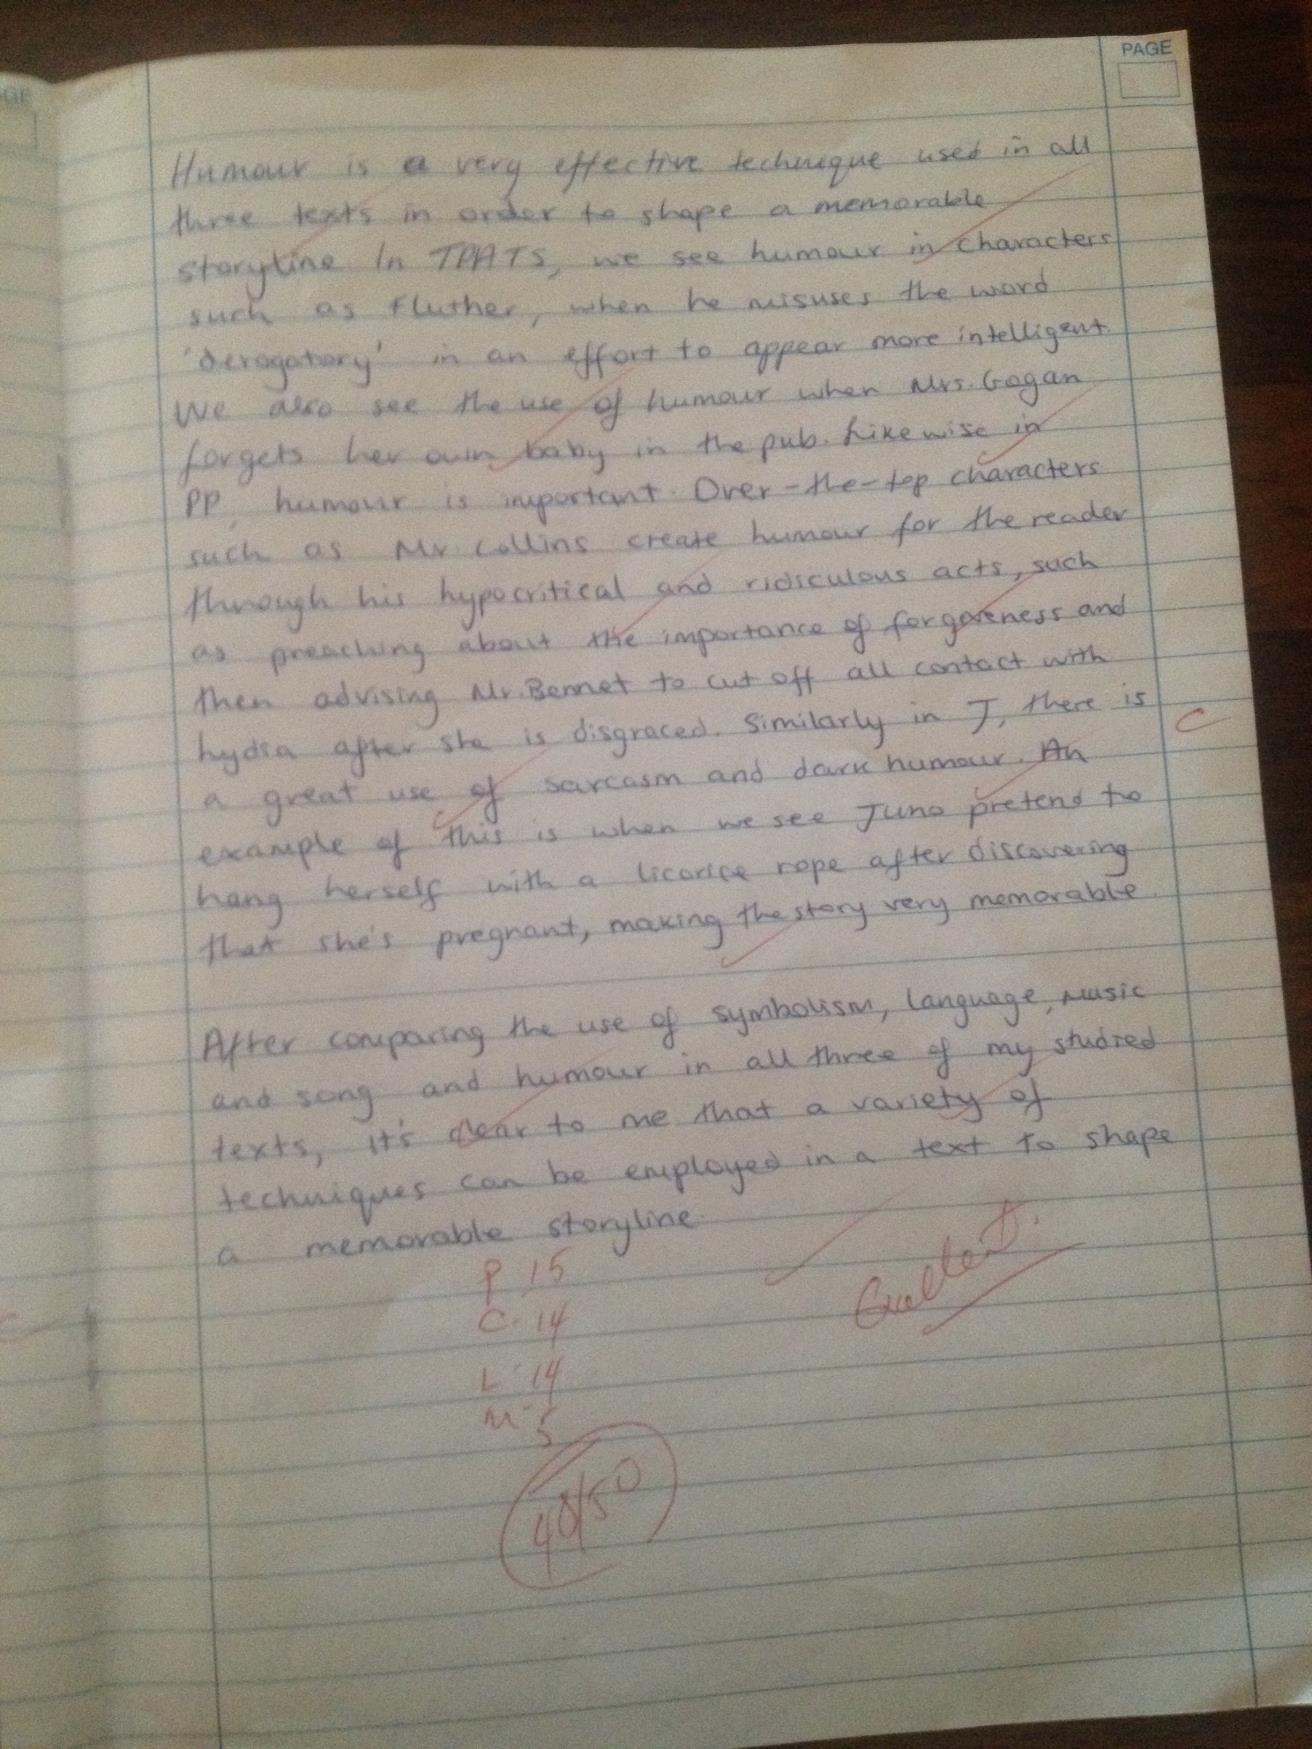 PAGE
GE
Humour is a very effective technique used in all
three texts in order to shape a memorable
storyline. In TPATS, we see humour in characters
such as Fluther, when he misuses the word
'derogatory' in an effort to appear more intelligent.
We also see the use of humour when Mrs. Gogan
forgets her own baby in the pub. Likewise in
PP, humour is important. Over-the-top characters
such as Mr. Collins create humour for the reader
through his hypocritical and ridiculous acts, such
as preaching about the importance of forgiveness and
then advising Mr. Bennet to cut off all contact with
Lydia after she is disgraced. Similarly in J, there is
C
a great use of sarcasm and dark humour. An
example of this is when we see Juno pretend to
hang herself with a licorice rope after discovering
that she's pregnant, making the story very memorable.
After comparing the use of symbolism, language, music
and song and humour in all three of my studied
texts, it's clear to me that a variety of
techniques can be employed in a text to shape
a memorable storyline.
Excellent.
P 15
C. 14
L. 14
M. 5
48/50